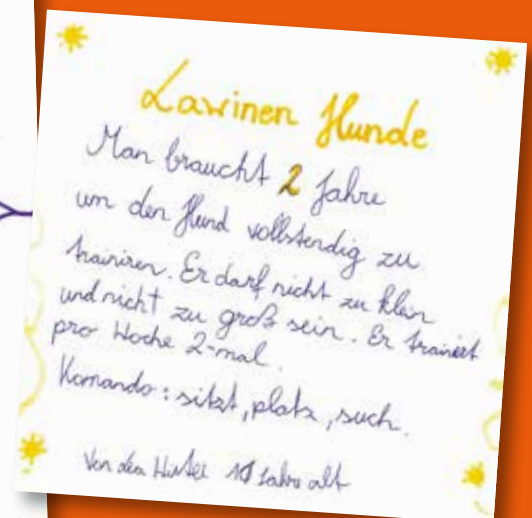 Lawinen Hunde
Man braucht 2 Jahre
um den Hund vollstendig zu
trainiren. Er darf nicht zu klein
und nicht zu groß sein. Er trainiert
pro Woche 2-mal.
Komando: sitzt, platz, such.
Jahre alt